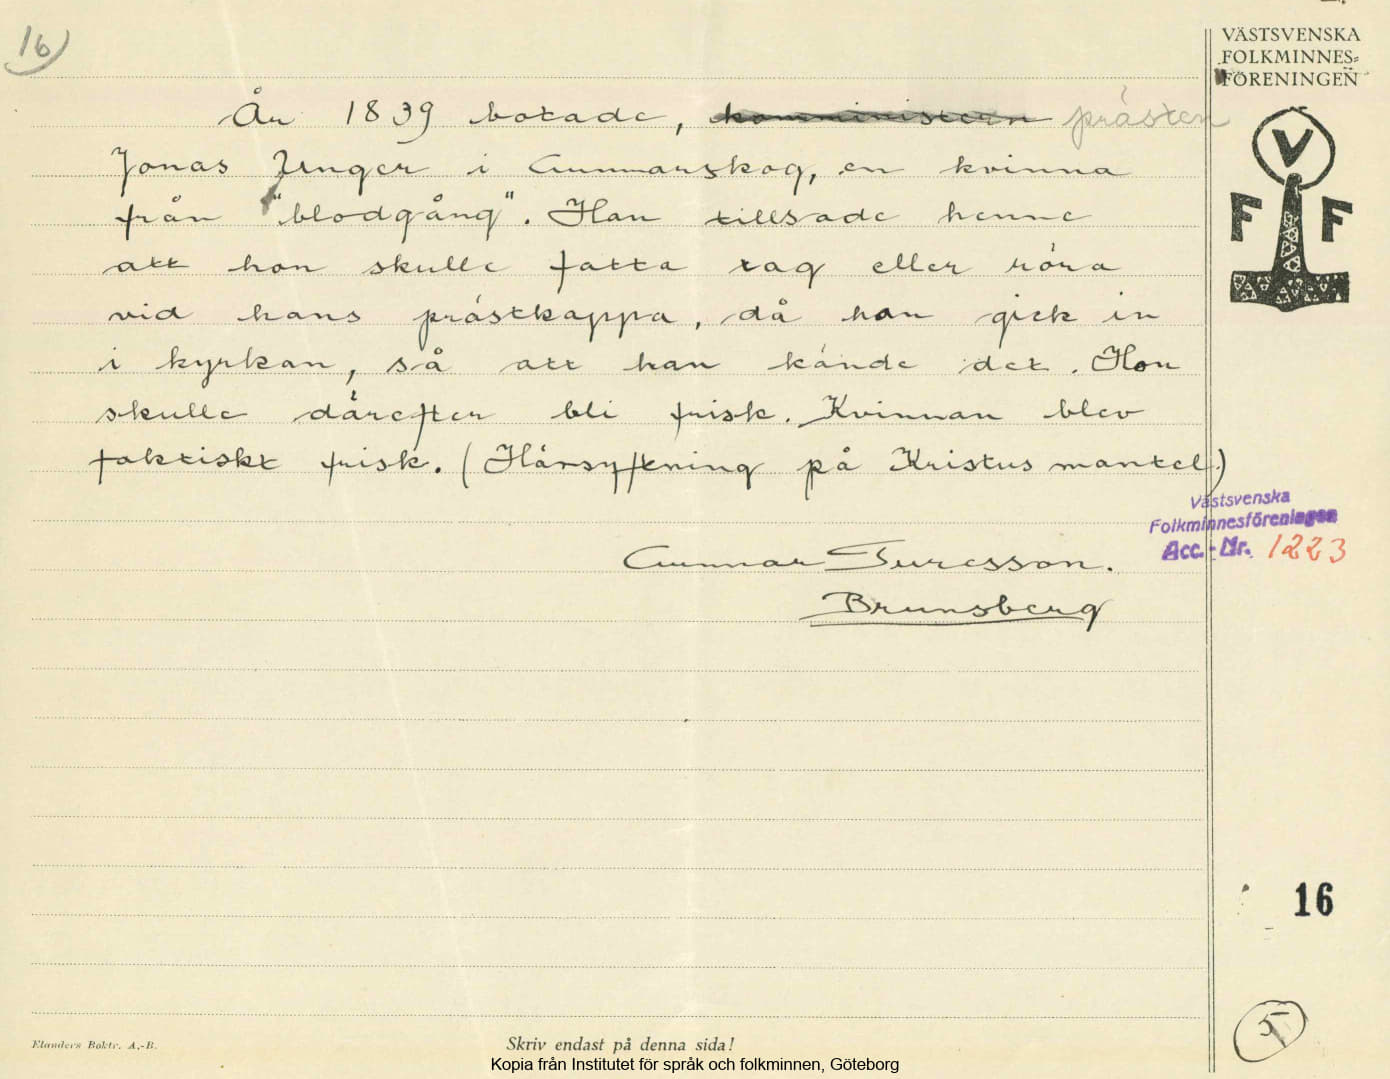 16)
VÄSTSVENSKA
FOLKMINNES=
FÖRENINGEN
År 1839 botade, komministern prästen
Jonas Unger i Gunnarskog, en kvinna
från "blodgång". Han tillsade henne
att hon skulle fatta tag eller röra
vid hans prästkappa, då han gick in
i kyrkan, så att han kände det. Hon
skulle därefter bli frisk. Kvinnan blev
faktiskt frisk. (Härsyftning på Kristus mantel.)
V
F F
Västsvenska
Folkminnesföreningen
Acc.-Nr. 1223
Gunnar Turesson.
Brunsberg
16
5
Elanders Boktr. A.-B.
Skriv endast på denna sida!
Kopia från Institutet för språk och folkminnen, Göteborg